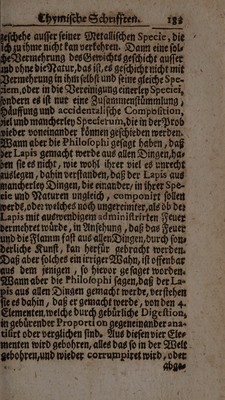 Chymische Schrifften. 183
geschehe ausser seiner Metallischen Specie, die
ich zu ihme nicht kan verkehren. Dann eine sol-
che Vermehrung des Gewichts geschicht ausser
und ohne die Natur, das ist, es geschicht nicht mit
Vermehrung in ihm selbst und seine gleiche Spe-
ciem, oder in die Vereinigung einerley Speciei,
sondern es ist nur eine Zusammenstümmlung,
Häuffung und accidentalische Composition,
viel und mancherley Specierum, die in der Prob
wieder voneinander können geschieden werden.
Wann aber die Philosophi gesagt haben, daß
der Lapis gemacht werde aus allen Dingen, ha-
ben sie es nicht, wie wohl ihrer viel es unrecht
auslegen, dahin verstanden, daß der Lapis aus
mancherley Dingen, die einander, in ihrer Spe-
cie und Naturen ungleich, componirt sollen
werde, oder welches noch ungereimter, als ob der
Lapis mit auswendigem administrirten Feuer
vermehret würde, in Ansehung, daß das Feuer
und die Flamm fast aus allen Dingen, durch son-
derliche Kunst, kan herfür gebracht werden.
Daß aber solches ein irriger Wahn, ist offenbar
aus dem jenigen, so hievor gesaget worden.
Wann aber die Philosophi sagen, daß der La-
pis aus allen Dingen gemacht werde, verstehen
sie es dahin, daß er gemacht werde, von den 4.
Elementen, welche durch gebürliche Digestion,
in gebürender Proportion gegeneinander ana-
tisirt oder verglichen sind. Aus diesen vier Ele-
menten wird gebohren, alles das so in der Welt
gebohren, und wieder corrumpiret wird, oder
abge-